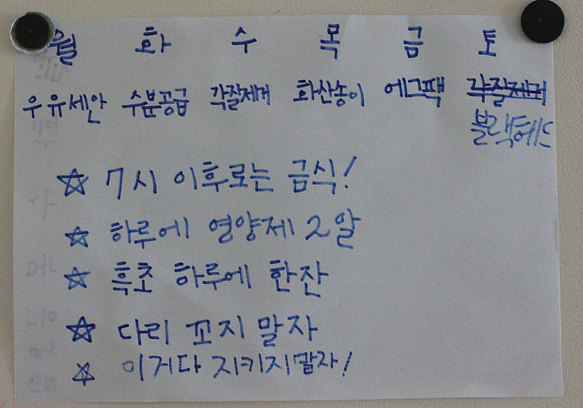 월 화 수 목 금 토
우유세안 수분공급 각질제거 화산송이 에그팩 각질제거
블랙헤드
☆ 7시 이후로는 금식!
☆ 하루에 영양제 2알
☆ 흑초 하루에 한잔
☆ 다리 꼬지 말자
☆ 이거다 지키지말자!